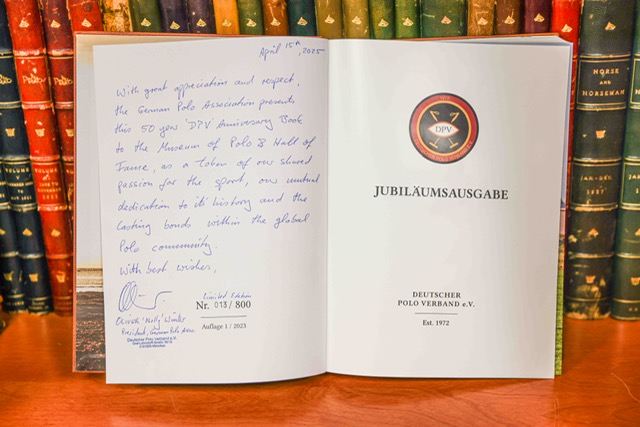 April 15th, 2025
With great appreciation and respect,
the German Polo Association presents
this 50 year 'DPV' Anniversary Book
to the Museum of Polo & Hall of
Fame, as a token of our shared
passion for the sport, our mutual
dedication to its history and the
lasting bonds within the global
Polo community.
With best wishes,
Limited Edition
Nr. 013 / 800
Auflage 1 / 2023
Winter
President, German Polo Assn
Deutscher Polo Verband e.V.
DPV
JUBILÄUMSAUSGABE
DEUTSCHER
POLO VERBAND e.V.
Est. 1972
HORSE
AND
HORSEMAN
JAN-DEC
1937
POLO
VOLUME